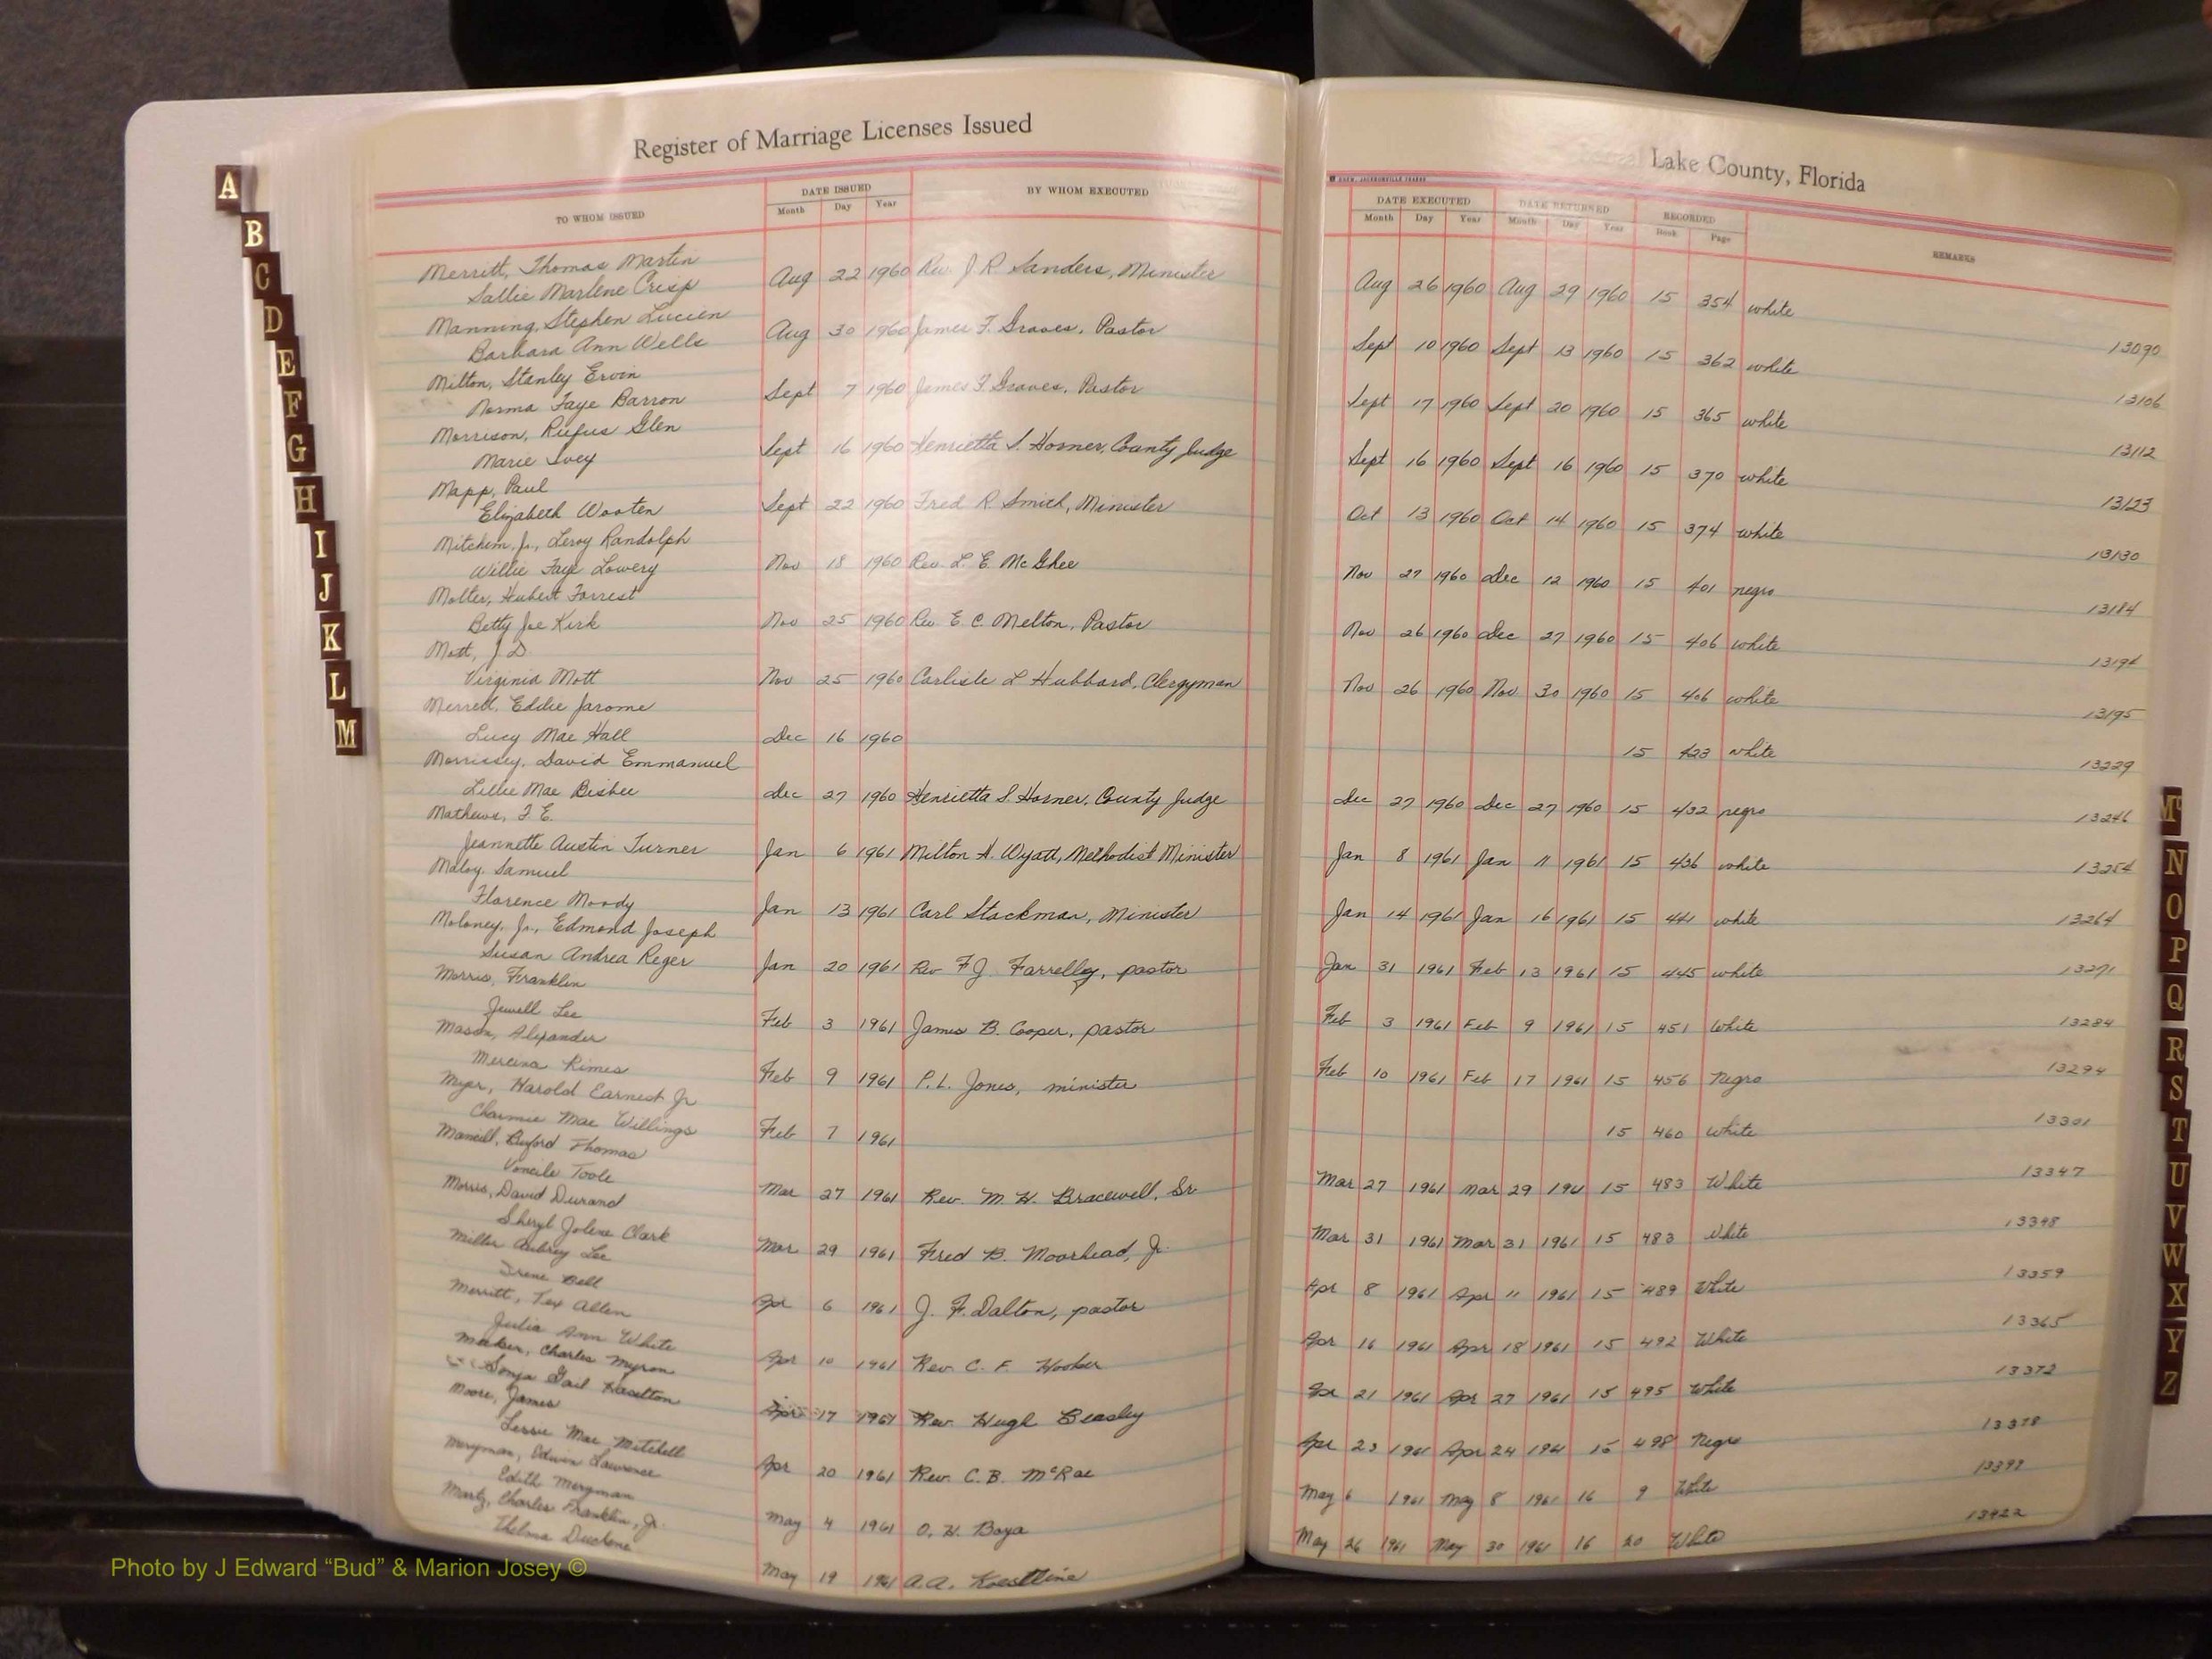 Register of Marriage Licenses Issued
Lake County, Florida
TO WHOM ISSUED
DATE ISSUED
Month Day Year
BY WHOM EXECUTED
DATE EXECUTED
Month Day Year
DATE RETURNED
Month Day Year
RECORDED
Book Page
REMARKS
Merritt, Thomas Martin
Sallie Marlene Crisp
Aug 22 1960 Rev. J R Sanders, Minister Aug 26 1960 Aug 29 1960 15 354 white 13090
Manning, Stephen Lucien
Barbara Ann Wells
Aug 30 1960 James T. Graves, Pastor Sept 10 1960 Sept 13 1960 15 362 white 13106
Milton, Stanley Ervin
Norma Faye Barron
Sept 7 1960 James T. Graves, Pastor Sept 17 1960 Sept 20 1960 15 365 white 13112
Morrison, Rufus Glen
Marie Ivey
Sept 16 1960 Henrietta S. Horner, County Judge Sept 16 1960 Sept 16 1960 15 370 white 13123
Mapp, Paul
Elizabeth Wooten
Sept 22 1960 Fred R Smith, Minister Oct 13 1960 Oct 14 1960 15 374 white 13130
Mitchem, Jr., Leroy Randolph
Willie Faye Lowery
Nov 18 1960 Rev. L. E. McGhee Nov 27 1960 Dec 12 1960 15 401 negro 13184
Molter, Hubert Forrest
Betty Joe Kirk
Nov 25 1960 Rev E. C. Melton, Pastor Nov 26 1960 Dec 27 1960 15 406 white 13194
Mott, J. D.
Virginia Mott
Nov 25 1960 Carlisle L Hubbard, Clergyman Nov 26 1960 Nov 30 1960 15 406 white 13195
Merrell, Eddie Jarome
Lucy Mae Hall
Dec 16 1960 15 423 white 13229
Morrissey, David Emmanuel
Lillie Mae Bisbee
Dec 27 1960 Henrietta S. Horner, County Judge Dec 27 1960 Dec 27 1960 15 432 negro 13246
Mathews, F. E.
Jeannette Austin Turner
Jan 6 1961 Milton H. Wyatt, Methodist Minister Jan 8 1961 Jan 11 1961 15 436 white 13254
Maloy, Samuel
Florence Moody
Jan 13 1961 Carl Stackman, Minister Jan 14 1961 Jan 16 1961 15 441 white 13264
Moloney, Jr., Edmond Joseph
Susan Andrea Reger
Jan 20 1961 Rev F J. Farrelley, pastor Jan 31 1961 Feb 13 1961 15 445 white 13271
Morris, Franklin
Jewell Lee
Feb 3 1961 James B. Cooper, pastor Feb 3 1961 Feb 9 1961 15 451 White 13284
Mason, Alexander
Mercina Rimes
Feb 9 1961 P. L. Jones, minister Feb 10 1961 Feb 17 1961 15 456 Negro 13294
Myer, Harold Earnest Jr
Charmie Mae Willings
Feb 7 1961 15 460 White 13301
Buford Thomas
Voncile Toole
Mar 27 1961 Rev. M. H. Bracewell, Sr Mar 27 1961 Mar 29 1961 15 483 White 13347
Morris, David Durand
Sheryl Jolene Clark
Mar 29 1961 Fred B. Moorhead, Jr. Mar 31 1961 Mar 31 1961 15 483 White 13348
Miller Aubrey Lee
Irene Bell
Apr 6 1961 J. F. Dalton, pastor Apr 8 1961 Apr 11 1961 15 489 White 13359
Merritt, Tex Allen
Julia Ann White
Apr 10 1961 Rev. C. F. Hooker Apr 16 1961 Apr 18 1961 15 492 White 13365
Charles Myron
Sonja Gail Haselton
Apr 17 1961 Rev. Hugh Beasley Apr 21 1961 Apr 27 1961 15 495 White 13372
Moore, James
Lessie Mae Mitchell
Apr 20 1961 Rev. C. B. McRae Apr 23 1961 Apr 24 1961 15 498 Negro 13378
Meryman, Edwin Lawrence
Edith Meryman
May 4 1961 O. H. Boya May 6 1961 May 8 1961 16 9 White
Martz, Charles Franklin, Jr.
Thelma
May 19 1961 A. A. Koestline May 26 1961 May 30 1961 16 20 White 13422
A
B
C
D
E
F
G
H
I
J
K
L
M
Mc
N
O
P
Q
R
S
T
U
V
W
X
Y
Z
Photo by J Edward “Bud” & Marion Josey ©